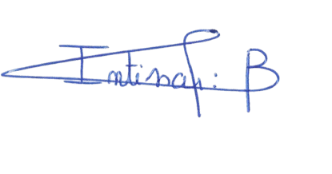 Intisar: B